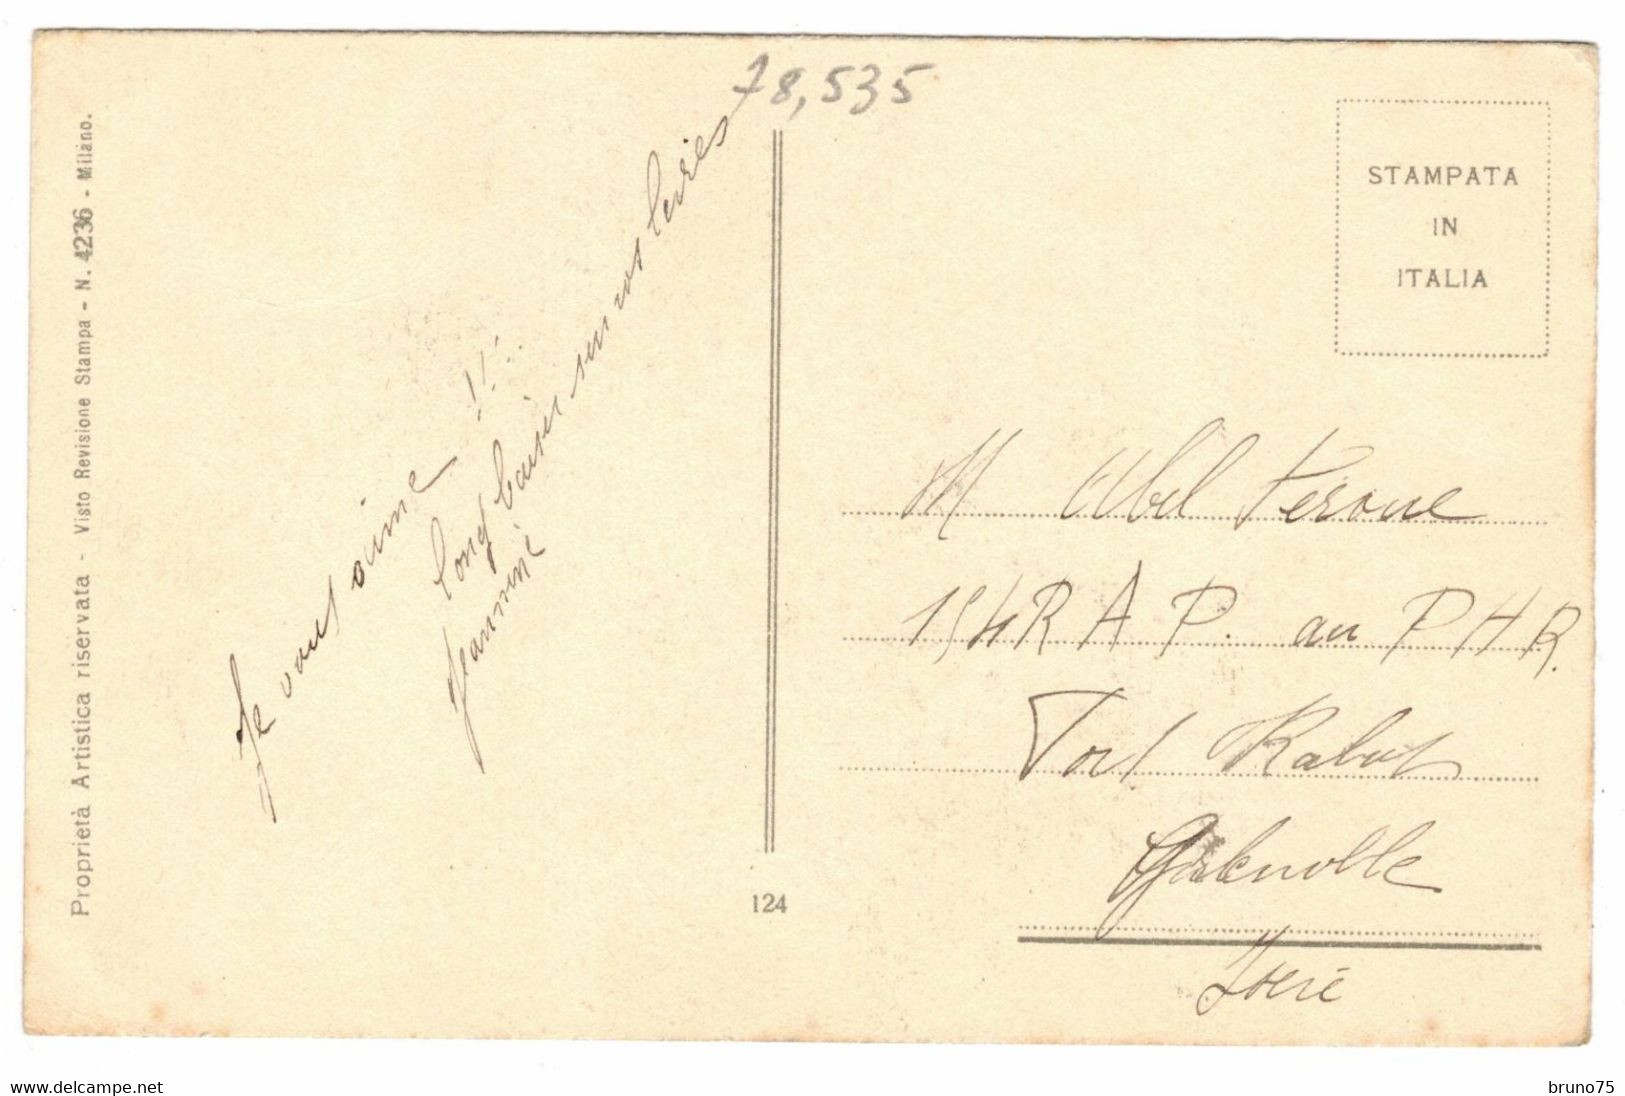 78,535
Proprietà Artistica riservata - Visto Revisione Stampa - N. 4236 - Milano.
Je vous aime !!...
long baiser sur vos lèvres
Jeannine
124
STAMPATA
IN
ITALIA
M Abel Perone
154 R A P. au P H R.
Fort Rabot
Grenoble
Isère
delcampe.net
bruno75